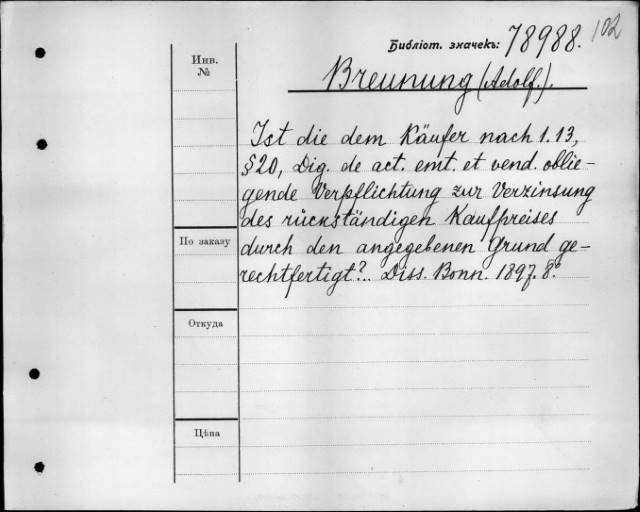 102
Библіот. значекъ: 78988.
Инв.
№
Breunung (Adolf.).
Ist die dem Käufer nach l. 13,
§ 20, Dig. de act. emt. et vend. oblie-
gende Verpflichtung zur Verzinsung
des rückständigen Kaufpreises
По заказу
durch den angegebenen Grund ge-
rechtfertigt?.. Diss. Bonn. 1897. 8º.
Откуда
Цѣна